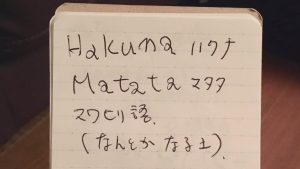 Hakuna ハクナ
Matata マタタ
スワヒリ語.
(なんとか なるさ).